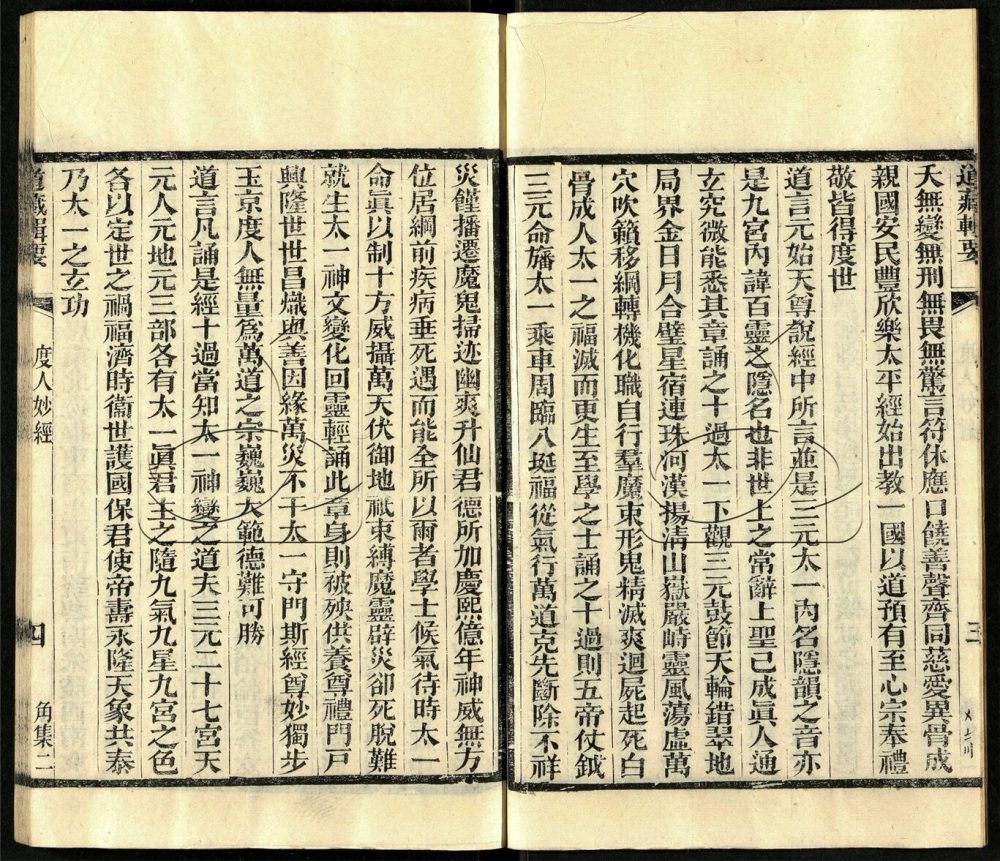 道藏輯要
三
天無變無刑無畏無驚言符休應口饒善聲齊同慈愛異骨成
親國安民豐欣樂太平經始出教一國以道預有至心宗奉禮
敬皆得度世
道言元始天尊說經中所言並是三元太一內名隱韻之音亦
是九宮內諱百靈之隱名也非世上之常辭上聖已成眞人通
玄究微能悉其章誦之十過太一下觀三元鼓節天輪錯翠地
局界金日月合璧星宿連珠河漢揚淸山嶽嚴峙靈風蕩虛萬
穴吹籟移綱轉機化職白行羣魔束形鬼精滅爽迴屍起死白
骨成人太一之福滅而更生至學之士誦之十過則五帝仗鉞
三元命旛太一乘車周臨八埏福從氣行萬道克先斷除不祥
災饉播遷魔鬼掃迹幽爽升仙君德所加慶熙億年神威無方
位居綱前疾病垂死遇而能全所以爾者學士候氣待時太一
命眞以制十方威攝萬天伏御地祇束縛魔靈辟災卻死脫難
就生太一神文變化回靈輕誦此章身則被殃供養尊禮門戸
興隆世世昌熾與善因緣萬災不干太一守門斯經尊妙獨步
玉京度人無量爲萬道之宗巍巍大範德難可勝
道言凡誦是經十過當知太一神變之道夫三元二十七宮天
元人元地元三部各有太一眞君主之隨九氣九星九宮之色
各以定世之禍福濟時衞世護國保君使帝壽永隆天象共泰
乃太一之玄功
道藏輯要
度人妙經
四
角集二